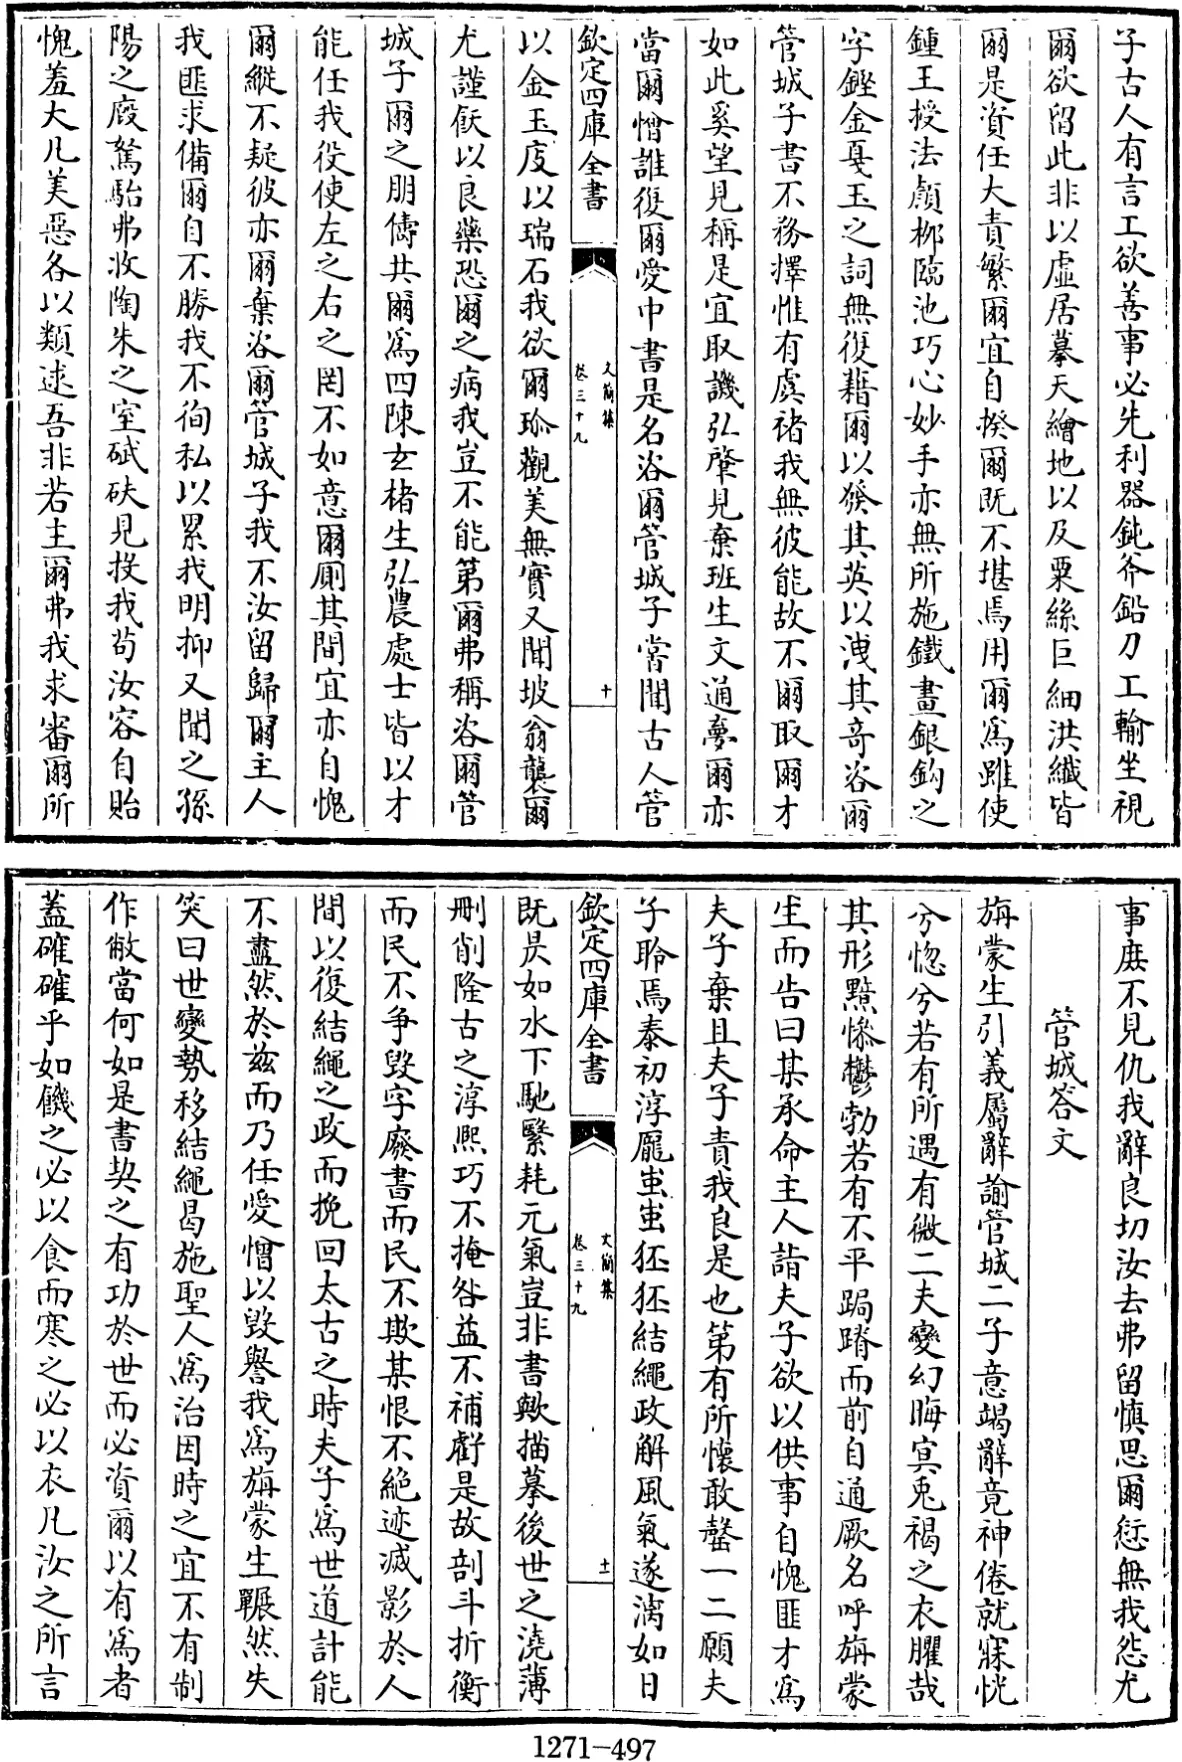 子古人有言工欲善事必先利器鈍斧鉛刀工輸坐視
爾欲留此非以虛居摹天繪地以及粟絲巨細洪纖皆
爾是資任大責繁爾宜自揆爾既不堪焉用爾爲雖使
鍾王授法顏柳臨池巧心妙手亦無所施鐵畫銀鈎之
字鏗金戛玉之詞無復藉爾以發其英以洩其奇咨爾
管城子書不務擇惟有虞褚我無彼能故不爾取爾才
如此奚望見稱是宜取譏弘肇見棄班生文通夢爾亦
當爾憎誰復爾愛中書是名咨爾管城子嘗聞古人管
欽定四庫全書
文簡集
卷三十九
十
以金玉庋以瑞石我欲爾珍觀美無實又聞坡翁襲爾
尤謹飫以良藥恐爾之病我豈不能第爾弗稱咨爾管
城子爾之朋儔共爾爲四陳玄楮生弘農處士皆以才
能任我役使左之右之罔不如意爾厠其間宜亦自愧
爾縱不疑彼亦爾棄咨爾管城子我不汝留歸爾主人
我匪求備爾自不勝我不徇私以累我明抑又聞之孫
陽之廄駑駘弗收陶朱之室碔砆見投我苟汝容自貽
愧羞大凡美惡各以類逑吾非若主爾弗我求審爾所
事庶不見仇我辭良切汝去弗留愼思爾愆無我怨尤
管城答文
旃蒙生引義屬辭諭管城二子意竭辭竟神倦就寐恍
兮惚兮若有所遇有微二夫變幻晦㝠兎褐之衣臞哉
其形黯慘鬱勃若有不平跼蹐而前自通厥名呼旃蒙
生而告曰某承命主人詣夫子欲以供事自愧匪才爲
夫子棄且夫子責我良是也第有所懷敢罄一二願夫
子聆焉泰初淳厖蚩蚩狉狉結繩政解風氣遂漓如日
欽定四庫全書
文簡集
卷三十九
十一
既昃如水下馳繄耗元氣豈非書歟描摹後世之澆薄
刪削隆古之淳熈巧不掩咎益不補虧是故剖斗折衡
而民不爭毀字廢書而民不欺某恨不絶迹滅影於人
間以復結繩之政而挽回太古之時夫子爲世道計能
不盡然於兹而乃任愛憎以毀譽我爲旃蒙生囅然失
笑曰世變勢移結繩曷施聖人爲治因時之宜不有制
作敝當何如是書契之有功於世而必資爾以有爲者
蓋確確乎如饑之必以食而寒之必以衣凡汝之所言
1271-497